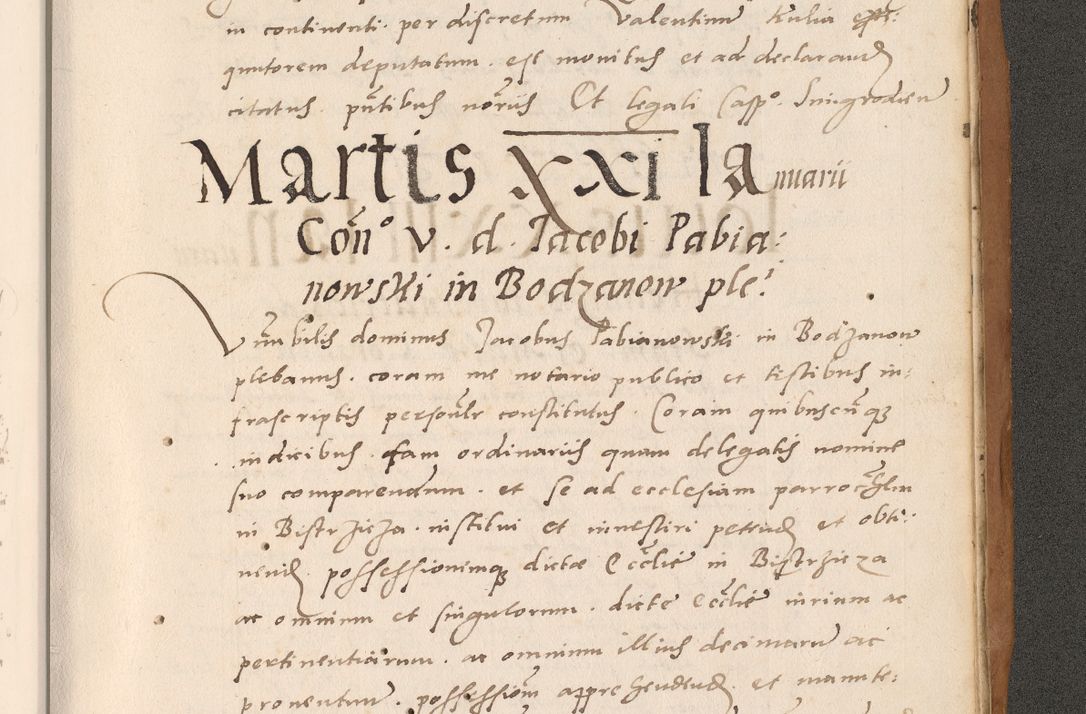 in continenti. per discretum Valentinū Kulia
quutorem deputatum. est monitus et ad declarand
citatus. pn̄tibus nōrijs Et legali Casp°. Sningrodien
Martis XXI Ianuarii
Con̄° v. d. Jacobi Pabia:
nowski in Bodzanow ple:
Vn̄rabilis dominus Jacobus Pabianowski in Bodzanow
plebanus. coram me notario publico et testibus in:
frascriptis person̄lr constitutus. Coram quibuscūq
iudicibus. tam ordinarijs quam delegatis nomine
suo comparendum. et se ad ecclesiam parroch̄lem
in Bistrzicza. institui et inuestiri petend et obti:
nend possessionemq dictæ Eccl̄ie in Bistrzicza
ac omnium et singulorum. dicte Eccl̄ie iurium ac
pertinentiarum. ac omnium illius decimarū ac
prouentuū. possession̄ apprehendend. et manute: